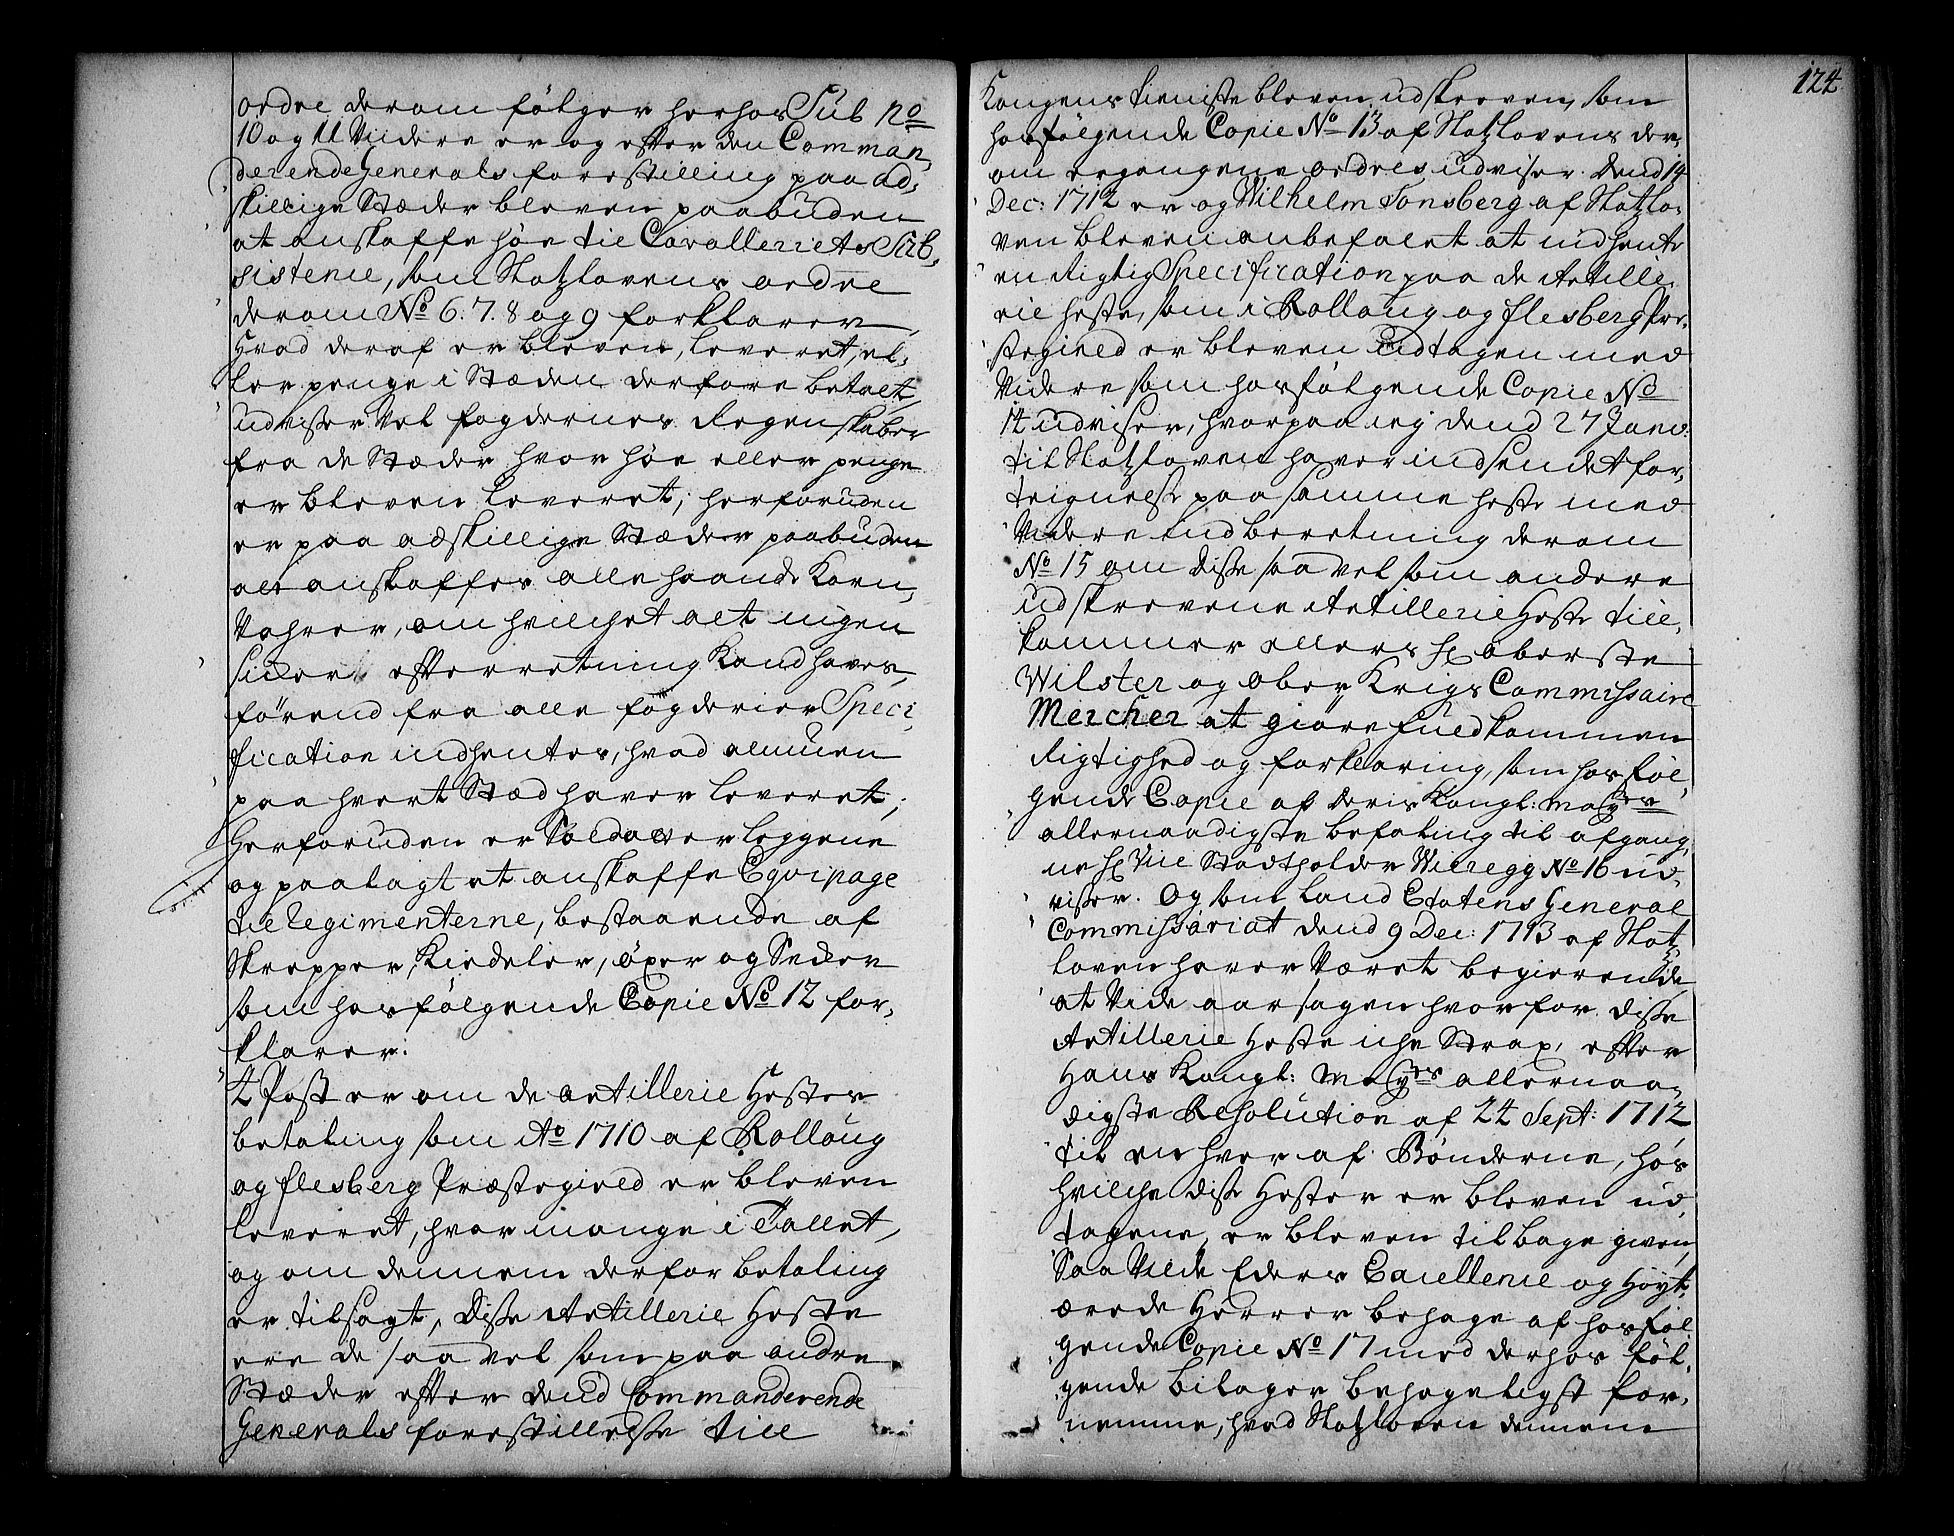 ordre derom følger herhos Sub No
10 og 11 Viidere er og efter den Comman,
derende Generals forestilling paa ad,
skillige Stæder bleven paabuden
at anskaffe høe til Cavalleriets Sub,
sistence, som Slotzlovens ordre
derom No 6. 7. 8 og 9 forklarer
Hvad deraf er bleven, leveret, el,
ler penge i Stæden derfore betalt,
udviser Vel fogdernes Regenskaber
fra de Stæder hvor høe eller penge
er bleven leveret; herforuden
er paa adskillige Stæder paabuden
at anskaffes alle haande Korn,
Vahrer, om hvilchet alt ingen
sicker efterretning Kand haves,
førend fra alle fogderier Speci,
fication indhentes, hvad almuen
paa hvert Stæd haver leveret;
Herforuden er Soldater leggene
og paalagt at anskaffe Eqvipage
til Regimenterne, bestaaende af
Skrepper, Kiedeler, øxer og Sedler
som hosfølgende Copie No 12 for,
klarer:
4 Post er om de Artillerie Hestes
betaling som Ao 1710 af Rolloug
og flesberg Præstegield er bleven
leveret, hvor mange i Tallet,
og om dennem derfor betaling
er tilsagt, Disse Artillerie Heste
ere de saa vel som paa andre
Stæder efter dend Commanderende
Generals forestillelse till
124
Kongens tieniste bleven udskreven, som
hosfølgende Copie No 13 af Slotzlovens der,
om ergangene ordres udviser. Dend 14
Dec: 1712 er og Wilhelm Tonsberg af Slotzlo,
ven bleven anbefalet at indhente
en Rigtig Specification paa de Artille,
rie heste, som i Rolloug og flesberg Præ,
stegield er bleven udtagen med
Videre som hosfølgende Copie No
14 udviser, hvorpaa ieg dend 27 Janv:
til Slotzloven haver indsendet for,
teignelse paa samme heste med
Videre indberetning derom
No 15 om disse saa vel som andere
udskrevene Artillerie Heste till,
kommer ellers Hr Oberste
Wilster og Ober Krigs Commissaire
Mercher at giøre fuldkommen
Rigtighed og forklaring, som hosføl,
gende Copie af deris Kongl: Mayts
allernaadigste befaling til afgang,
ne Hr Vice Stadtholder Vieregg No 16 ud,
viser. Og som Land Etatens General
Commissariat dend 9 Dec: 1713 af Slotz
loven haver Været begierende
at Vide aarsagen hvorfor disse
Artillerie Heste iche Strax, efter
Hans Kongl: Mayts allernaa,
digste Resolution af 24 Sept: 1712
til en hver af Bønderne, hos
hvilche disse Hester er bleven ud,
tagene, er bleven tilbage given,
Saa Vilde Eders Excellence og Høyt,
ærede Herrer behage af hosføl,
gende Copie No 17 med derhos føl,
gende bilager behageligst for,
nemme, hvad Slotzloven dennem